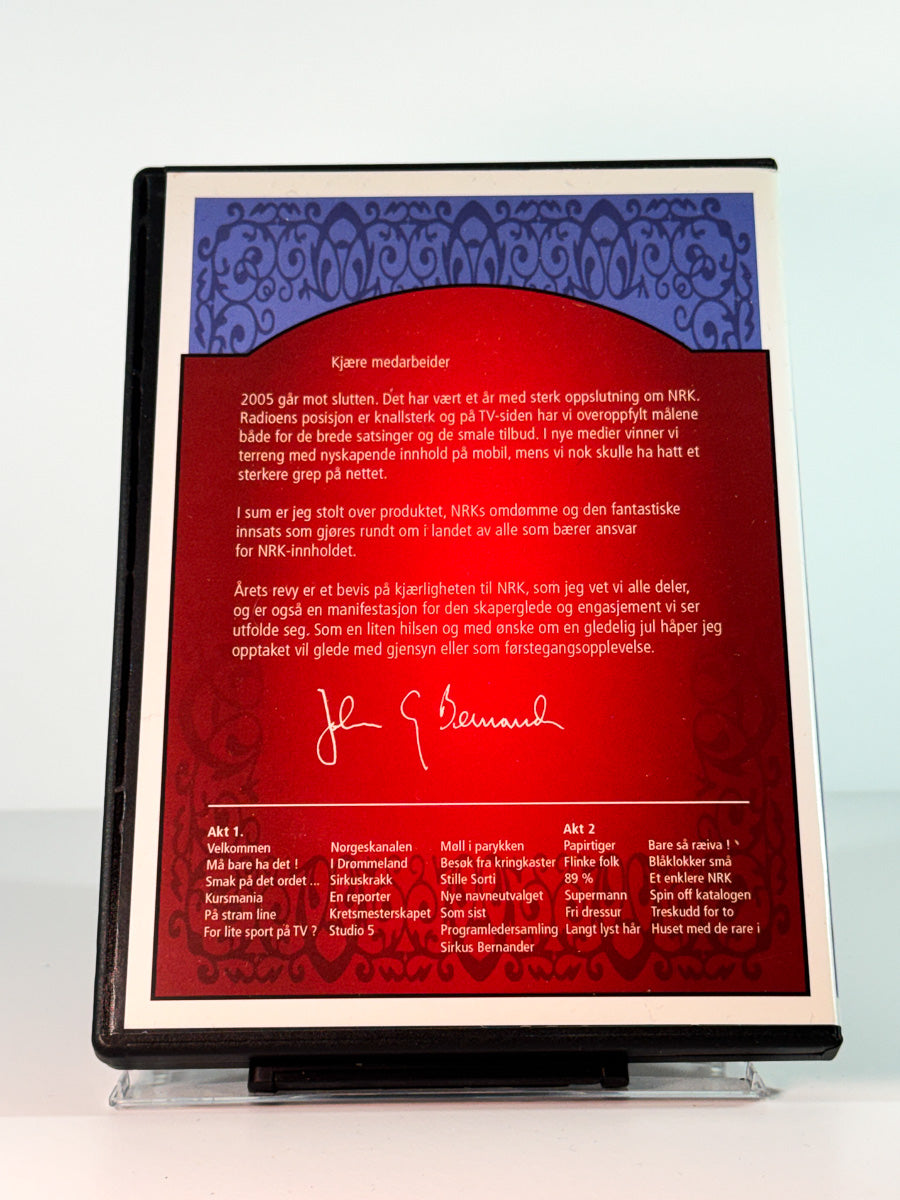 Kjære medarbeider
2005 går mot slutten. Det har vært et år med sterk oppslutning om NRK.
Radioens posisjon er knallsterk og på TV-siden har vi overoppfylt målene
både for de brede satsinger og de smale tilbud. I nye medier vinner vi
terreng med nyskapende innhold på mobil, mens vi nok skulle ha hatt et
sterkere grep på nettet.
I sum er jeg stolt over produktet, NRKs omdømme og den fantastiske
innsats som gjøres rundt om i landet av alle som bærer ansvar
for NRK-innholdet.
Årets revy er et bevis på kjærligheten til NRK, som jeg vet vi alle deler,
og er også en manifestasjon for den skaperglede og engasjement vi ser
utfolde seg. Som en liten hilsen og med ønske om en gledelig jul håper jeg
opptaket vil glede med gjensyn eller som førstegangsopplevelse.
John G Bernand
Akt 1.
Velkommen
Må bare ha det !
Smak på det ordet ...
Kursmania
På stram line
For lite sport på TV ?
Norgeskanalen
I Drømmeland
Sirkuskrakk
En reporter
Kretsmesterskapet
Studio 5
Møll i parykken
Besøk fra kringkaster
Stille Sorti
Nye navneutvalget
Som sist
Programledersamling
Sirkus Bernander
Akt 2
Papirtiger
Flinke folk
89 %
Supermann
Fri dressur
Langt lyst hår
Bare så ræiva !
Blåklokker små
Et enklere NRK
Spin off katalogen
Treskudd for to
Huset med de rare i